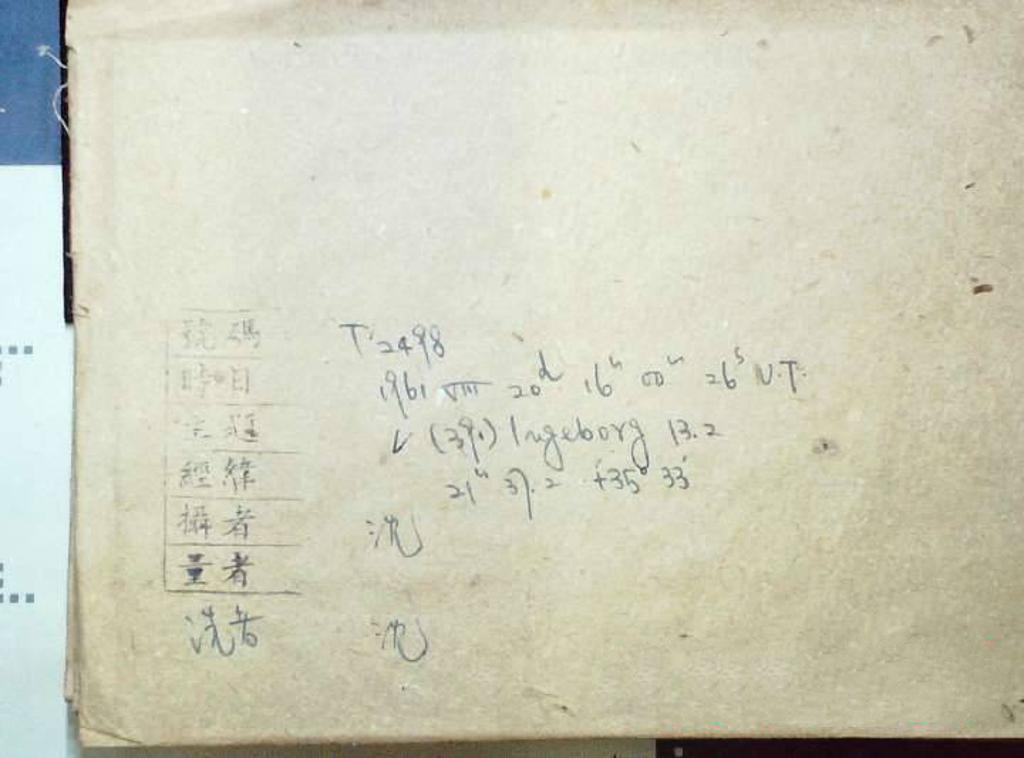 號碼 T 2498
時日 1961 VIII 20d 16h 00m 26s U.T.
主題 ✓ (391) Ingeborg 13.2
經緯 21h 37.2 +35° 33'
攝者 沈
量者
洗者 沈